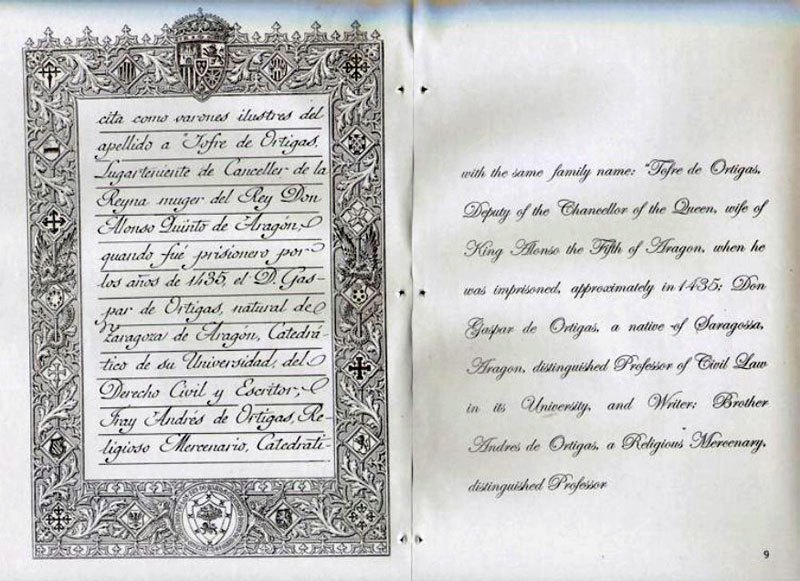 cita como varones ilustres del
apellido a "Tofre de Ortigas,
Lugarteniente de Canceller de la
Reyna muger del Rey Don
Alonso Quinto de Aragón,
quando fué prisionero por
los años de 1435, el D. Gas-
par de Ortigas, natural de
Zaragoza de Aragón, Catedrá-
tico de su Universidad, del
Derecho Civil y Escritor;
Fray Andrés de Ortigas, Re-
ligioso Mercenario, Catedrati-
with the same family name: "Tofre de Ortigas,
Deputy of the Chancellor of the Queen, wife of
King Alonso the Fifth of Aragon, when he
was imprisoned, approximately in 1435; Don
Gaspar de Ortigas, a native of Saragossa,
Aragon, distinguished Professor of Civil Law
in its University, and Writer; Brother
Andres de Ortigas, a Religious Mercenary,
distinguished Professor
9